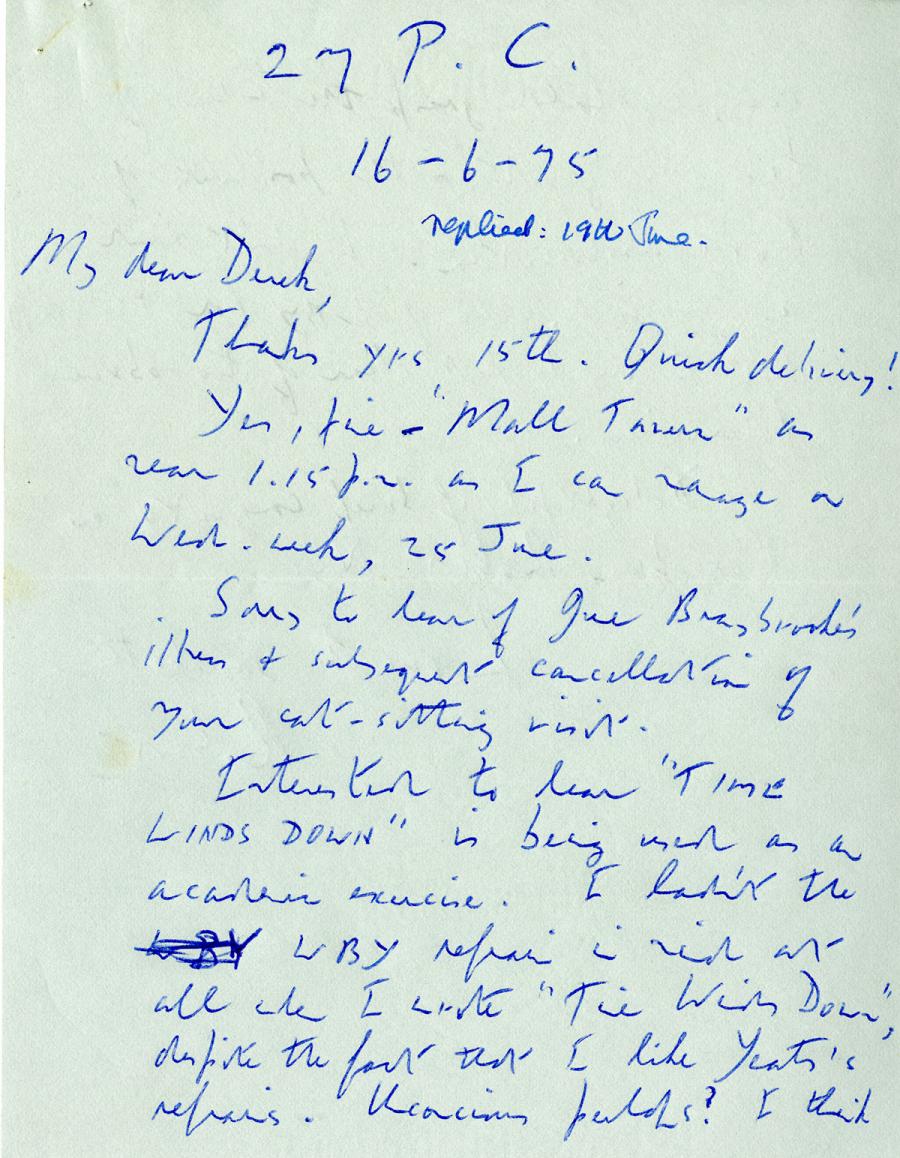 27 P. C.
16-6-75
replied: 19th June.
My dear Derek,
Thanks yrs 15th. Quick delivery!
Yes, fine - "Mall Tavern" as
near 1.15 p.m. as I can manage on
Wed. week, 25 June.
Sorry to hear of Braybrooke's
illness & subsequent cancellation of
your cat-sitting visit.
Interested to hear "TIME
WINDS DOWN" is being used as an
academic exercise. I hadn't the
WBY WBY refrain in mind at
all when I wrote "Time Winds Down",
despite the fact that I like Yeats's
refrains. Unconcious perhaps? I think